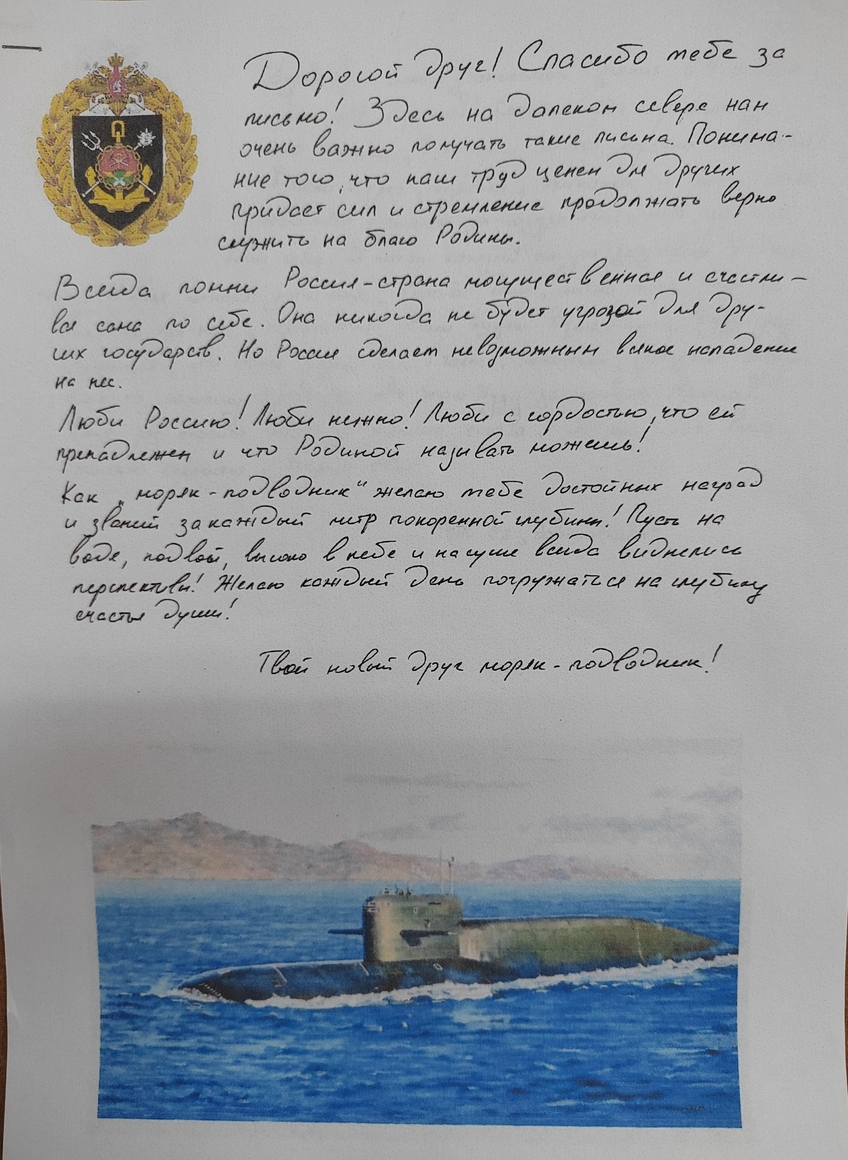 Дорогой друг! Спасибо тебе за
письмо! Здесь на далеком севере нам
очень важно получать такие письма. Понима-
ние того, что наш труд ценен для других
придает сил и стремление продолжать верно
служить на благо Родины.
Всегда помни Россия-страна могущественная и счастли-
вая сама по себе. Она никогда не будет угрозой для дру-
гих государств. Но Россия сделает невозможным всякое нападение
на нее.
Люби Россию! Люби нежно! Люби с гордостью, что ей
принадлежен и что Родиной называть можешь!
Как „моряк-подводник“ желаю тебе достойных наград
и званий за каждый метр покоренной глубины! Пусть на
воде, под водой, высоко в небе и на суше всегда виднелись
перспективы! Желаю каждый день погружаться на глубину
счастья души!
Твой новый друг моряк-подводник!